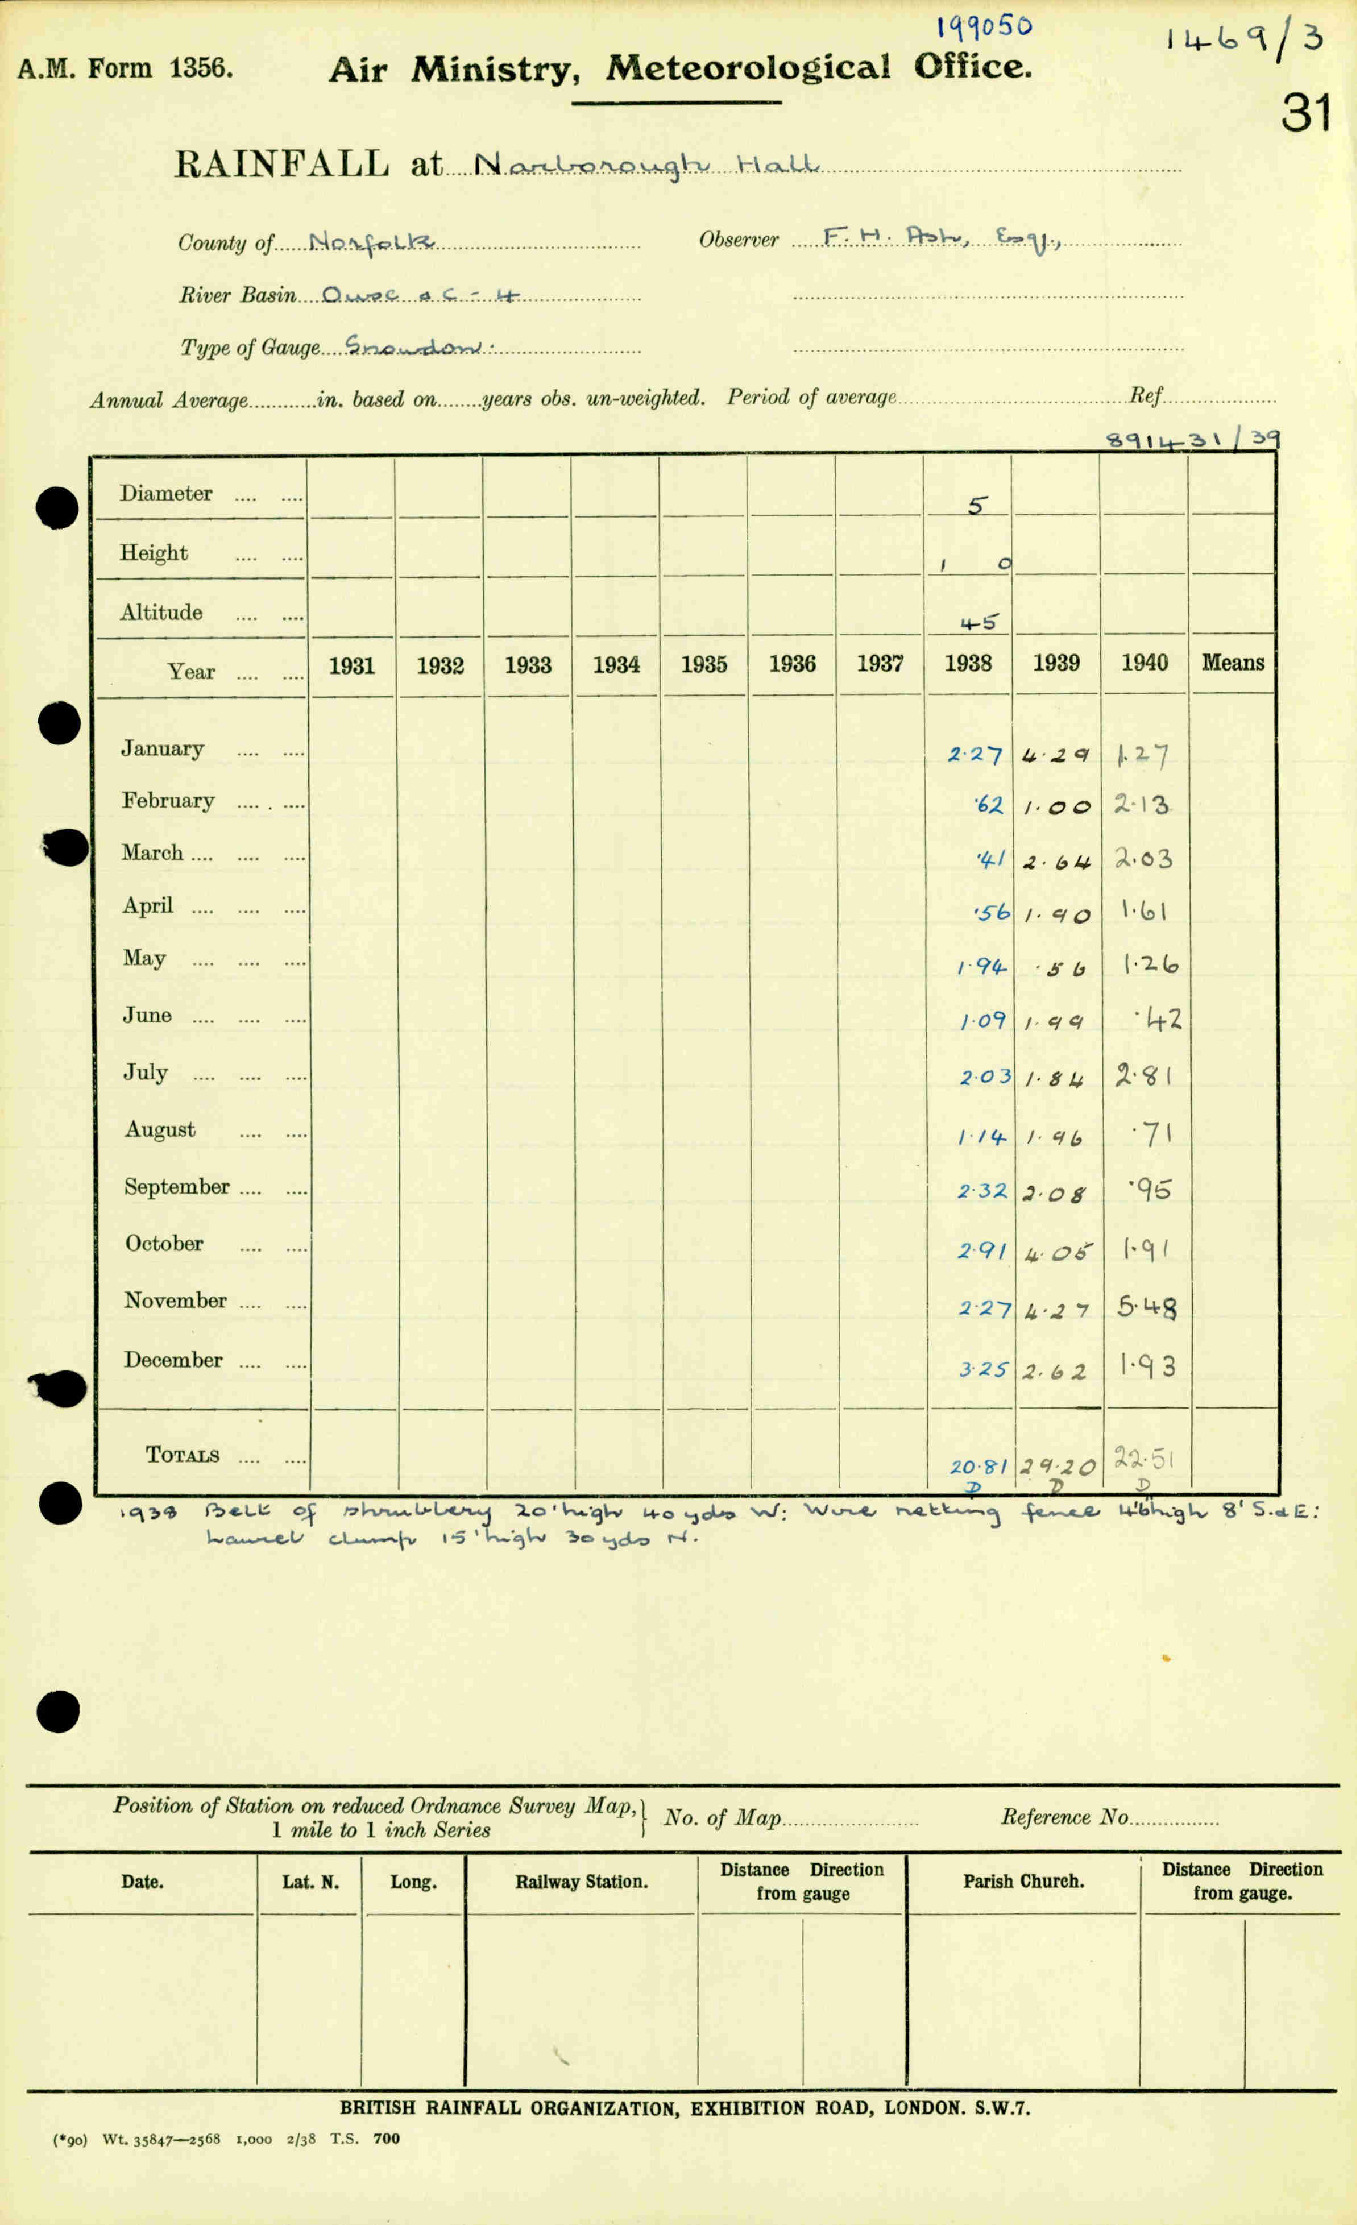 199050
1469/3
A.M. Form 1356. Air Ministry, Meteorological Office.
31
RAINFALL at Narborough Hall
County of Norfolk Observer F. H. Ash, Esq.,
River Basin Ouse &c - 4
Type of Gauge Snowdon.
Annual Average in. based on years obs. un-weighted. Period of average Ref.
891431/39
Diameter 5
Height 1 0
Altitude 45
Year 1931 1932 1933 1934 1935 1936 1937 1938 1939 1940 Means
January 2.27 4.29 1.27
February .62 1.00 2.13
March .41 2.64 2.03
April .56 1.90 1.61
May 1.94 .56 1.26
June 1.09 1.99 .42
July 2.03 1.84 2.81
August 1.14 1.96 .71
September 2.32 2.08 .95
October 2.91 4.05 1.91
November 2.27 4.27 5.48
December 3.25 2.62 1.93
TOTALS 20.81 29.20 22.51
D D D
1938 Belt of shrubbery 20' high 40 yds W: Wire netting fence 4'6 high 8' S. & E:
Laurel clump 15' high 30 yds N.
Position of Station on reduced Ordnance Survey Map, } No. of Map Reference No.
1 mile to 1 inch Series
Date. Lat. N. Long. Railway Station. Distance Direction from gauge Parish Church. Distance Direction from gauge.
BRITISH RAINFALL ORGANIZATION, EXHIBITION ROAD, LONDON. S.W.7.
(*90) Wt. 35847—2568 1,000 2/38 T.S. 700